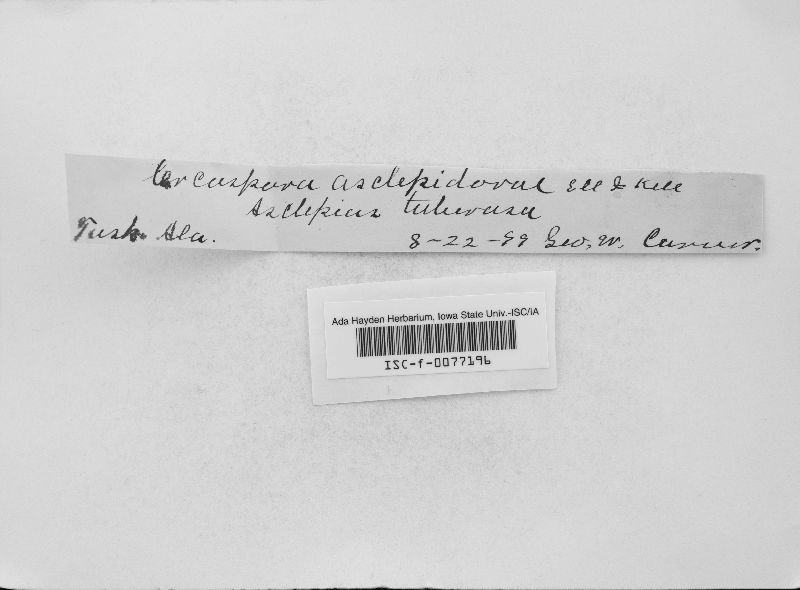 Cercospora asclepidorae Ell & Kell
Asclepias tuberosa
Tusk. Ala.
8-22-99 Geo. W. Carver.
Ada Hayden Herbarium, Iowa State Univ.-ISC/IA
ISC-f-0077196